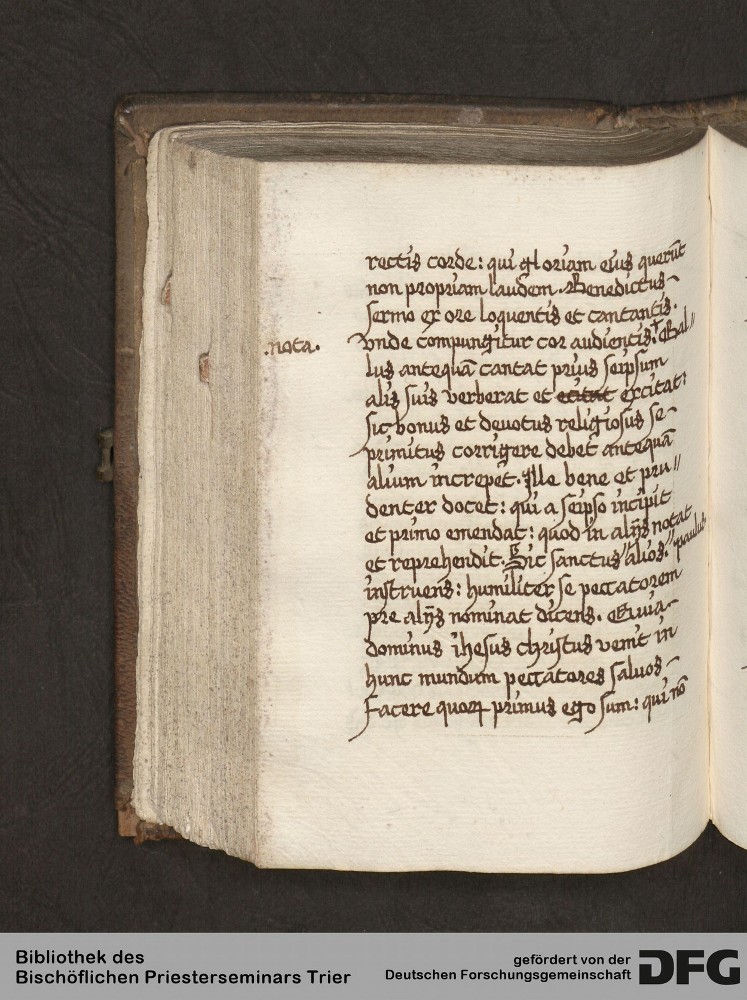 rectis corde: qui gloriam eius querūt
non propriam laudem. Benedictus
sermo ex ore loquentis et cantantis.
.nota.
Vnde compungitur cor audientis. Gal〃
lus antequā cantat prius seipsum
alis suis verberat et ecitat excitat:
sic bonus et deuotus religiosus se
primitus corrigere debet antequā
alium increpet. Ille bene et pru〃
denter docet: qui a seipso incipit
et primo emendat: quod in alijs notat
et reprehendit. Sic sanctus 〃 alios. 〃 paulus
instruens: humiliter se peccatorem
pre alijs nominat dicens. Quia
dominus ihesus christus venit in
hunc mundum peccatores saluos
facere quoꝝ primus ego sum: qui nō
Bibliothek des
Bischöflichen Priesterseminars Trier
gefördert von der
Deutschen Forschungsgemeinschaft
DFG